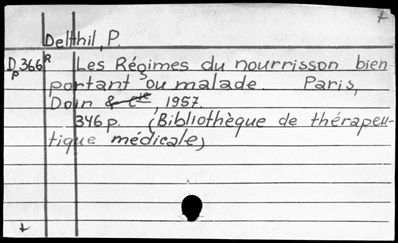 Delthil, P.
D366R Les Régimes du nourrisson bien
p portant ou malade. Paris,
Doin & Cie, 1957.
346 p. (Bibliothèque de thérapeu-
tique médicale)